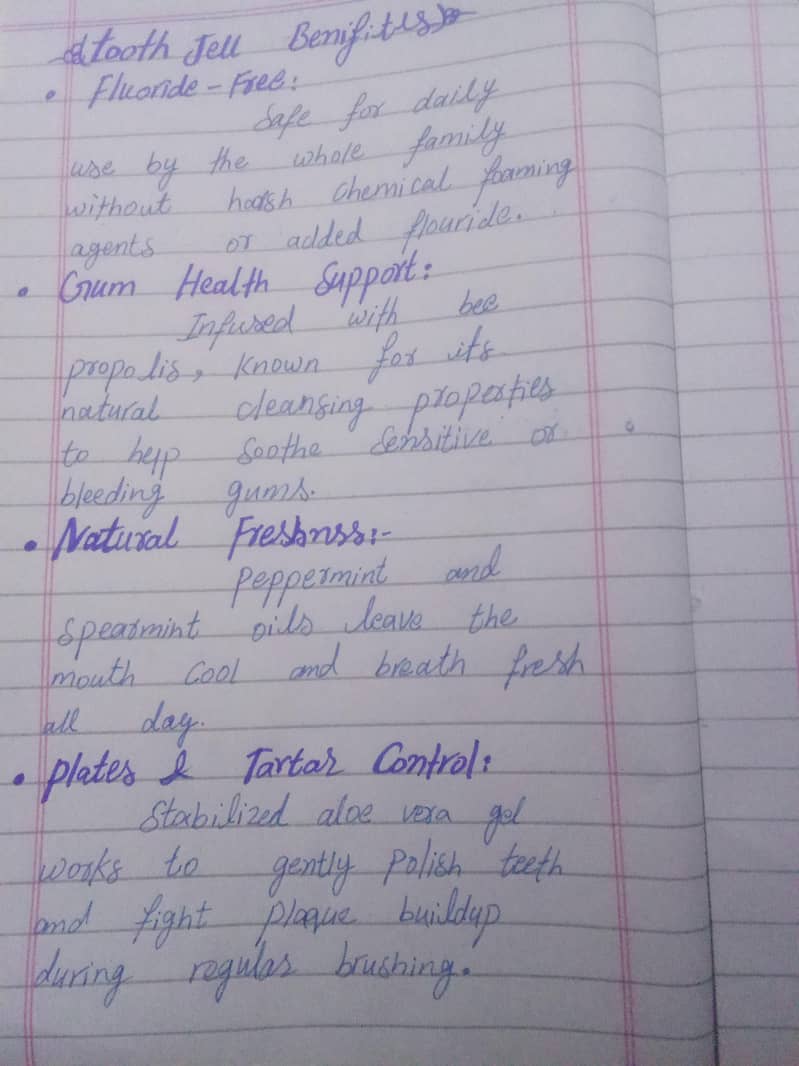 Tooth Jell Benifites
• Fluoride-Free:
Safe for daily
use by the whole family
without harsh chemical foaming
agents or added flouride.
• Gum Health Support:
Infused with bee
propolis, known for its
natural cleansing properties
to help soothe sensitive or
bleeding gums.
• Natural Freshnss:-
Peppermint and
spearmint oils leave the
mouth cool and breath fresh
all day.
• Plates & Tartar Control:
Stabilized aloe vera gel
works to gently polish teeth
and fight plaque buildup
during regular brushing.